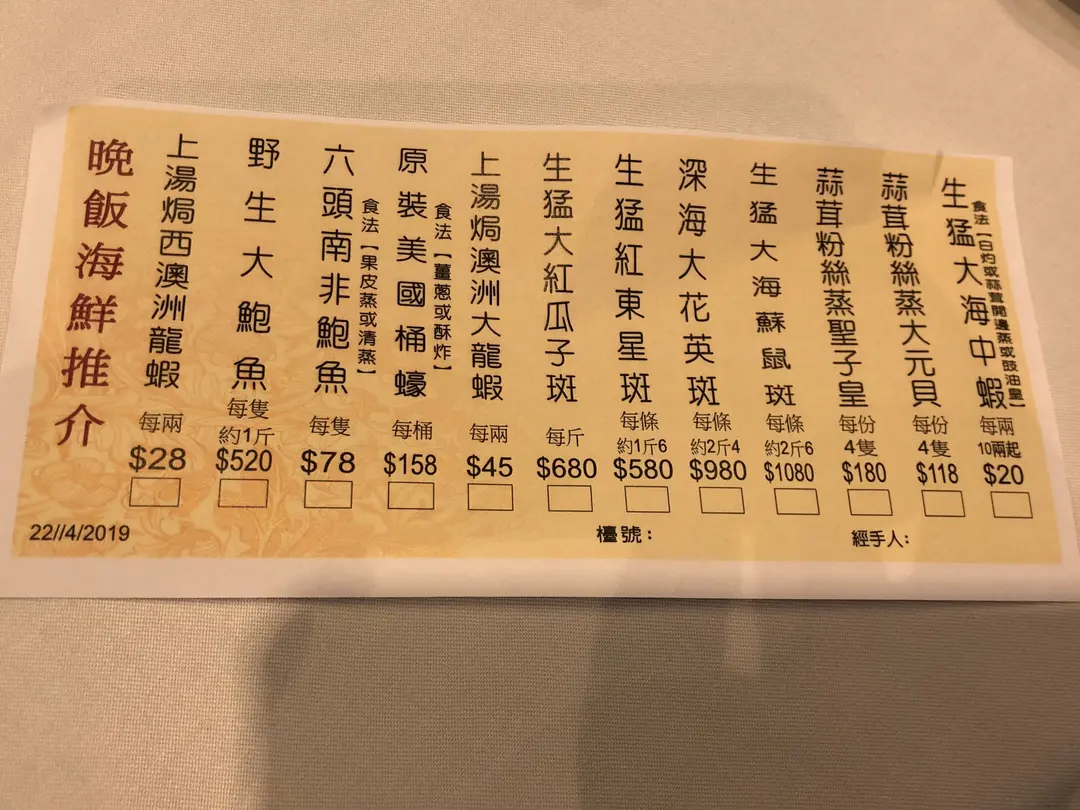 晚飯海鮮推介
上湯焗西澳洲龍蝦
每兩
$28
野生大鮑魚
每隻
約1斤
$520
六頭南非鮑魚
食法【果皮蒸或清蒸】
每隻
$78
原裝美國桶蠔
食法【薑蔥或酥炸】
每桶
$158
上湯焗澳洲大龍蝦
每兩
$45
生猛大紅瓜子斑
每斤
$680
生猛紅東星斑
每條
約1斤6
$580
深海大花英斑
每條
約2斤4
$980
生猛大海蘇鼠斑
每條
約2斤6
$1080
蒜茸粉絲蒸聖子皇
每份
4隻
$180
蒜茸粉絲蒸大元貝
每份
4隻
$118
生猛大海中蝦
食法【白灼或蒜茸開邊蒸或豉油皇】
每兩
10兩起
$20
22//4/2019
檯號：
經手人: